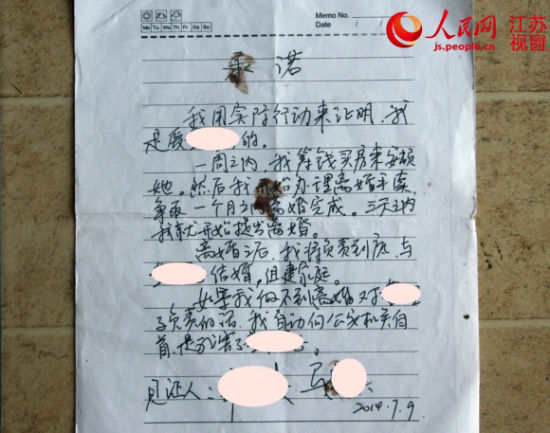 Memo No.
Mo Tu We Th Fr Sa Su
Date / /
人民网 江苏视窗
js.people.cn
承诺
我用实际行动来证明,我
是爱 的。
一周之内,我筹钱买房来安顿
她。然后我开始办理离婚手续,
争取一个月之内离婚完成。三天之内
我就开始提出离婚。
离婚之后,我将负责到底,与
结婚,组建家庭。
如果我做不到离婚对
子负责的话,我自动向公安机关自
首,是我害了 。
见证人:
2014.7.9